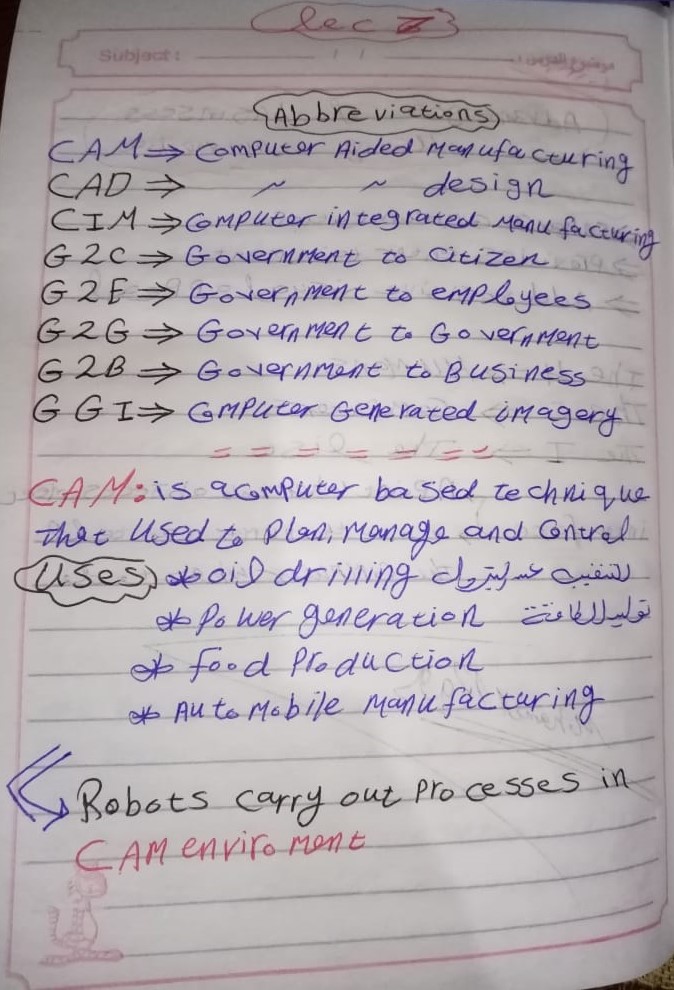 Lec 7
Subject:
موضوع الدرس:
Abbreviations
CAM ⇒ Computer Aided Manufacturing
CAD ⇒ ~ ~ design
CIM ⇒ Computer integrated Manufacturing
G2C ⇒ Government to citizen
G2E ⇒ Government to employees
G2G ⇒ Government to Government
G2B ⇒ Government to Business
GGI ⇒ Computer Generated imagery
= = = = = = =
CAM: is a computer based technique
that used to plan, manage and control
Uses * oil drilling التنقيب عن البترول
* Power generation توليد الطاقة
* food production
* Automobile manufacturing
Robots carry out processes in
CAM enviroment